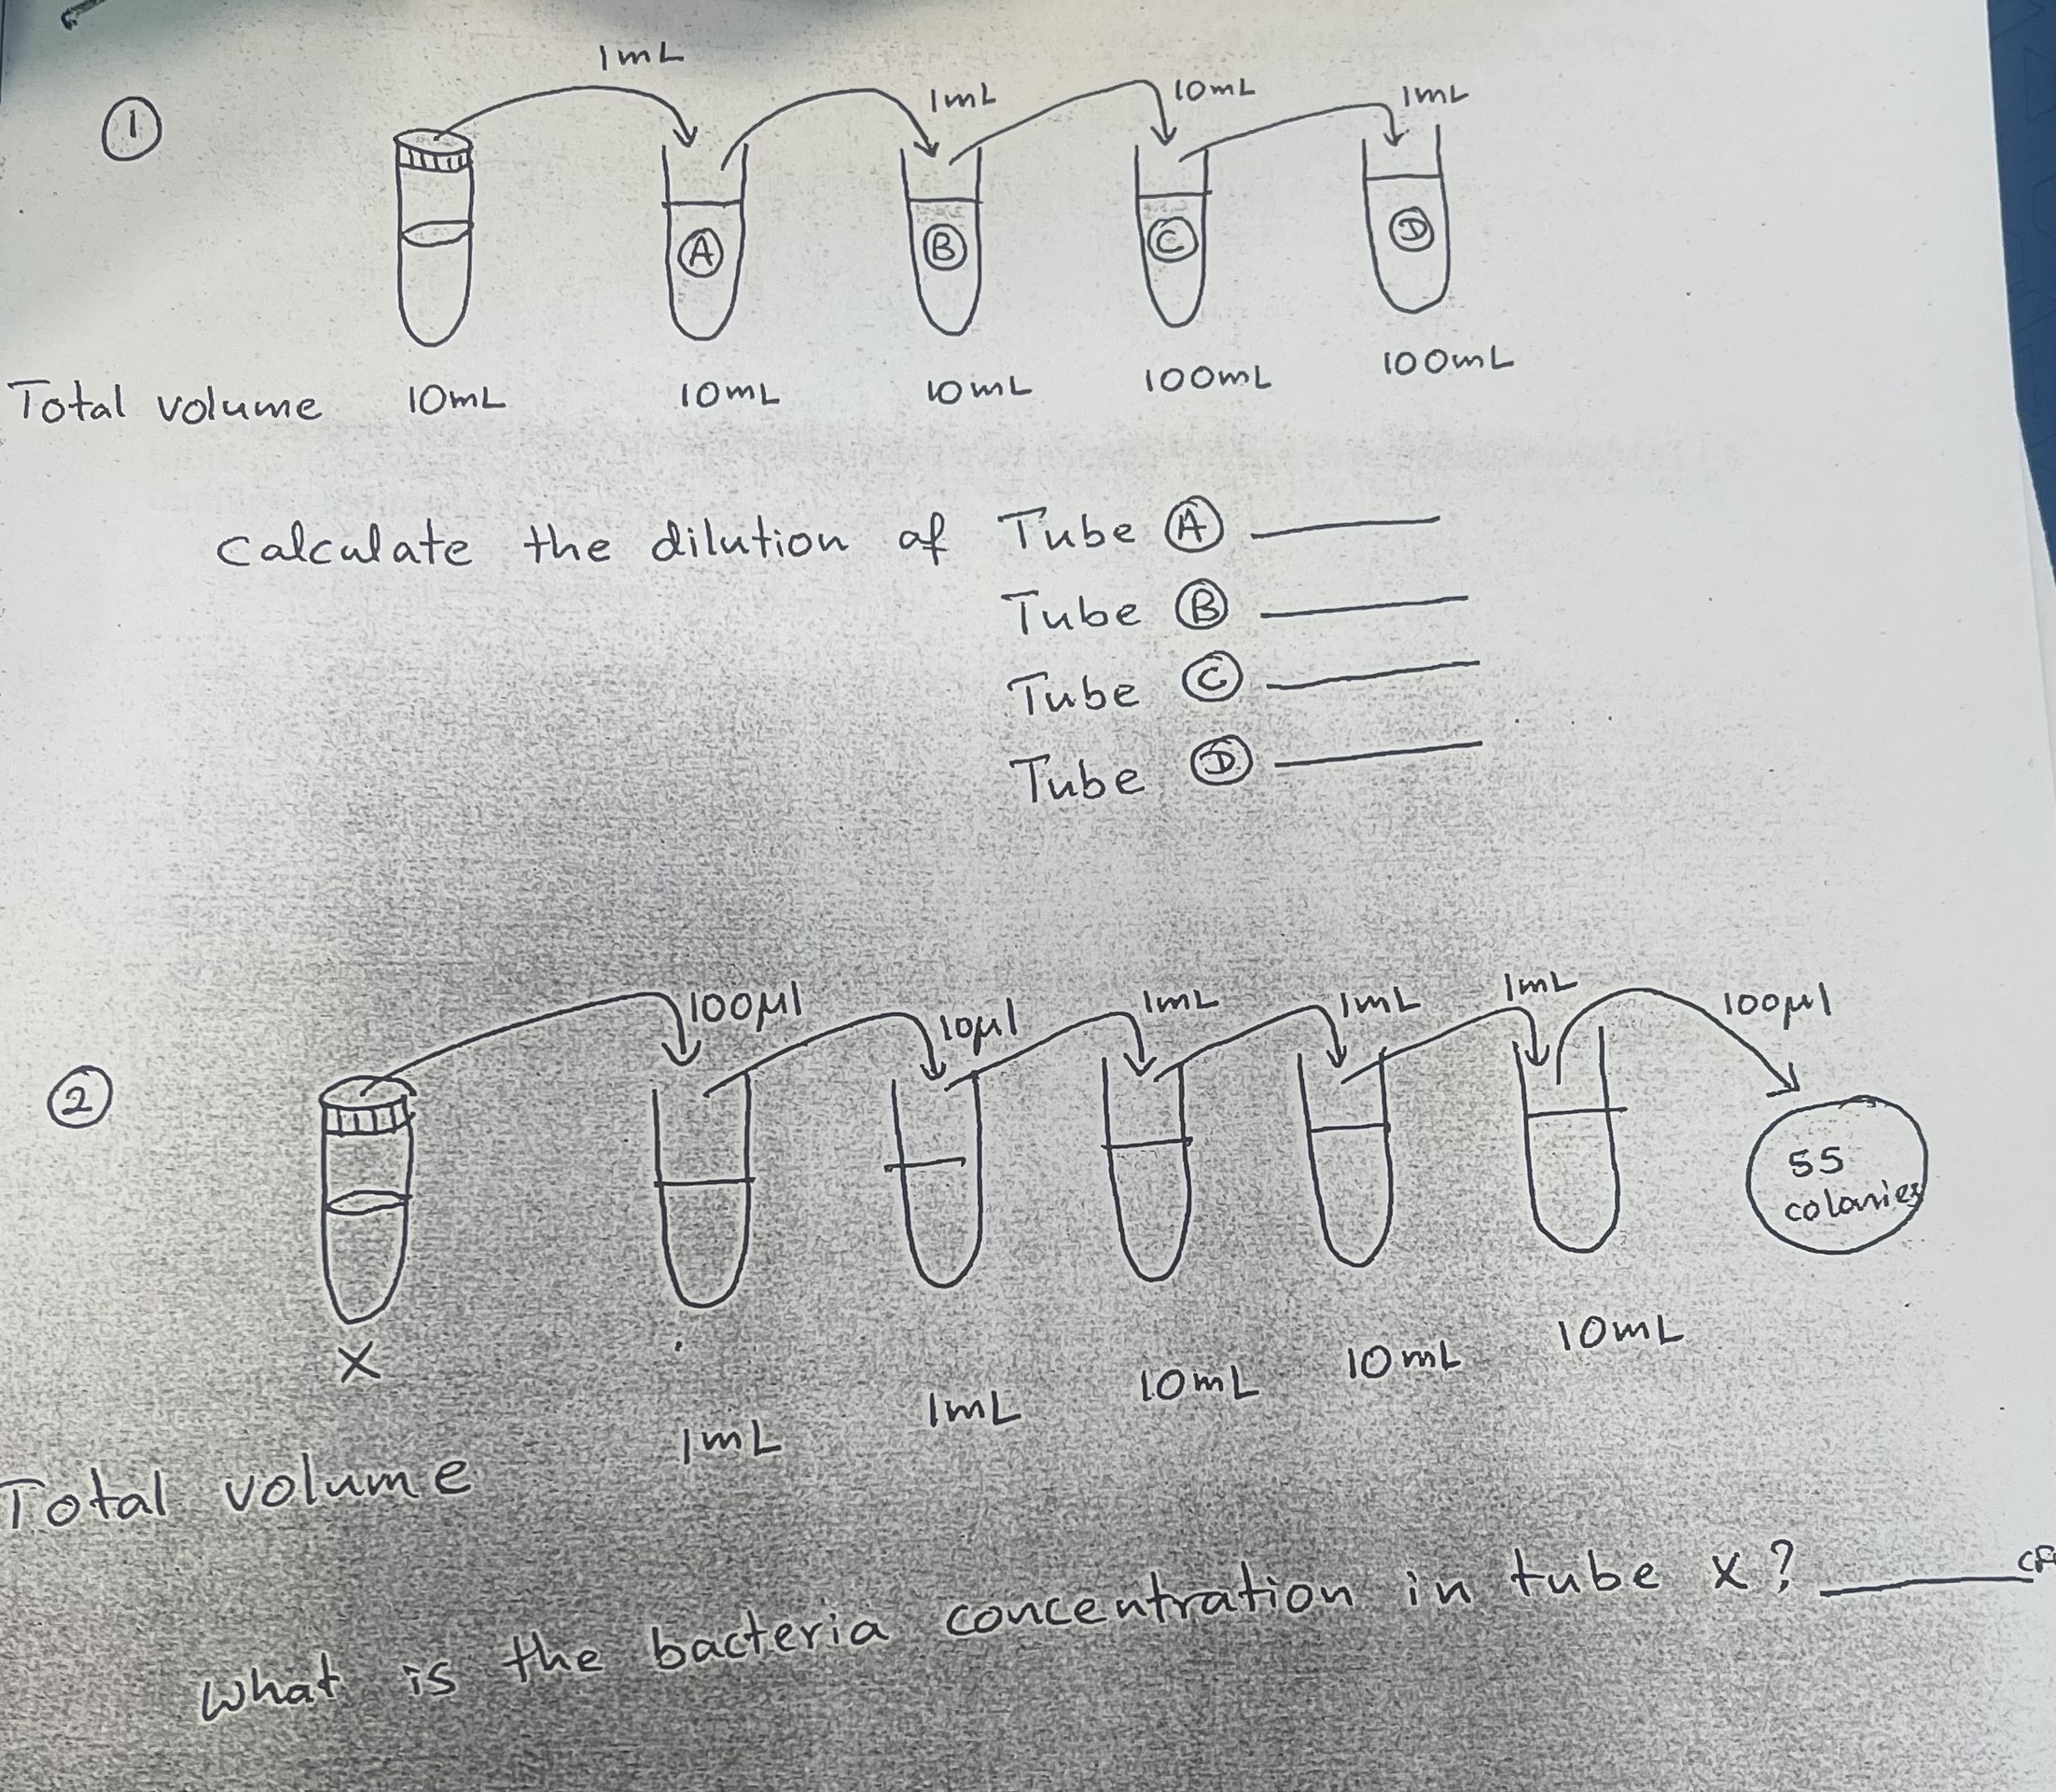 1
1mL
1mL
10mL
1mL
A
B
C
D
Total volume 10mL 10mL 10mL 100mL 100mL
Calculate the dilution of Tube A
Tube B
Tube C
Tube D
2
100μl
10μl
1mL
1mL
1mL
100μl
55
colonies
X
1mL
1mL
10mL
10mL
10mL
Total volume
What is the bacteria concentration in tube X?